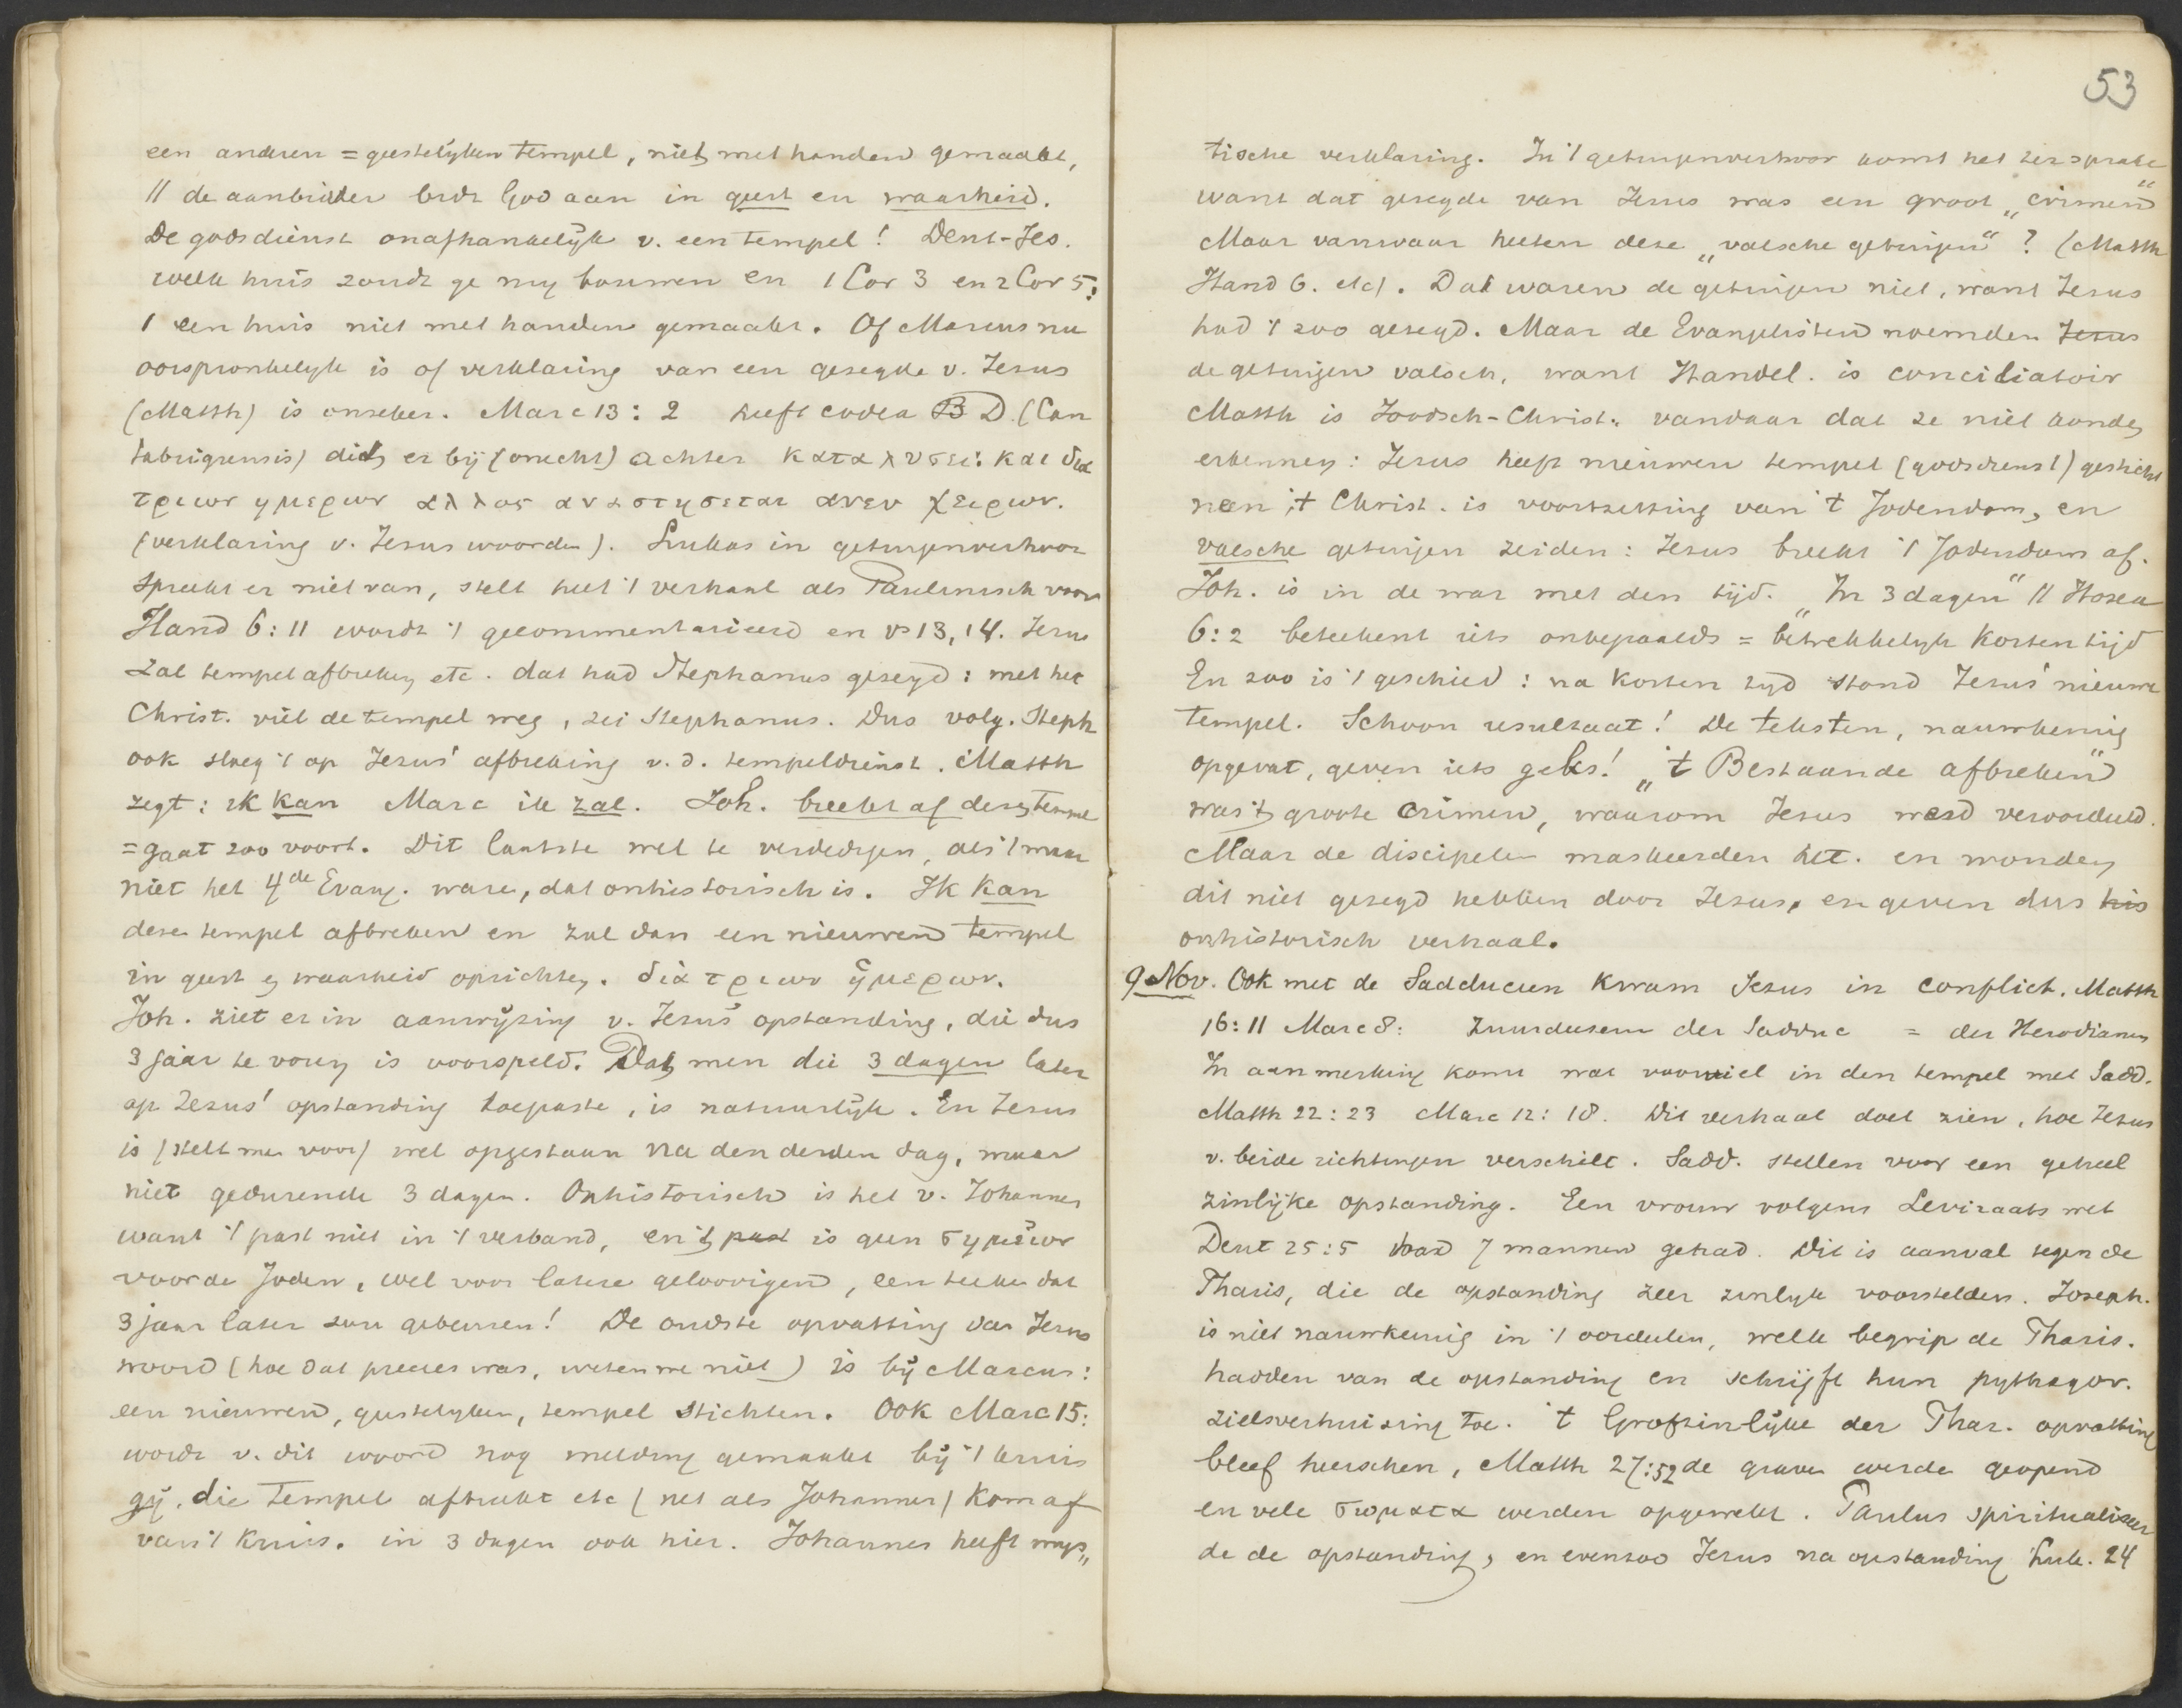 een anderen = geestelyken tempel, niet met handen gemaakt,
// de aanbidder bidt God aan in geest en waarheid.
De godsdienst onafhankelÿk v. een tempel! Deut-Jes.
welk huis zoudt ge my bouwen en 1 Cor 3 en 2 Cor 5:
1 een huis niet met handen gemaakt. Of Marcus nu
oorspronkelyk is of verklaring van een gezegde v. Jesus
(Matth) is onzeker. Marc 13:2 heeft codex B D (Can
tabrigiensis) dit er bÿ (onecht) achter καταλυσει: και δια
τριων ημερων αλλος αναστησεται ανευ χειρων.
(verklaring v. Jesus woorden). Lukas in getuigenverhoor
spreekt er niet van, stelt heel 't verhaal als Paulinisch voor
Hand 6:11 wordt 't gecommentarieerd en vs 13, 14. Jesus
zal tempel afbreken etc. dat had Stephanus gezegd: met het
Christ. viel de tempel weg, zei Stephanus. Dus volg. Steph
ook sloeg 't op Jezus' afbreking v. d. tempeldienst. Matth
zegt: ik kan Marc ik zal. Joh. breekt af dezen tempel
= gaat zoo voort. Dit laatste wel te verdedigen, als 't maar
niet het 4de Evang. ware, dat onhistorisch is. Ik kan
dezen tempel afbreken en zal dan een nieuwen tempel
in geest en waarheid oprichten. δια τριων ημερων.
Joh. ziet er in aanwÿzing v. Jesus' opstanding, die dus
3 jaar te voren is voorspeld. Dat men die 3 dagen later
op Jezus' opstanding toepaste, is natuurlÿk. En Jezus
is (stelt men voor) wel opgestaan na den derden dag, maar
niet gedurende 3 dagen. Onhistorisch is het v. Johannes
want 't past niet in 't verband, en 't past is geen σημειον
voor de Joden, wel voor latere geloovigen, een teeken dat
3 jaar later zou gebeuren! De oudste opvatting van Jesus
woord (hoe dat precies was, weten we niet) is bÿ Marcus:
een nieuwen, geestelyken, tempel stichten. Ook Marc 15:
wordt v. dit woord nog melding gemaakt bÿ 't kruis
gÿ, die tempel afbreekt etc (net als Johannes) kom af
van 't kruis. in 3 dagen ook hier. Johannes heeft mys„
53
tische verklaring. In 't getuigenverhoor komt het ter sprake
want dat gezegde van Jesus was een groot „crimen"
Maar vanwaar heeten deze „valsche getuigen"? (Matth
Hand 6. etc). Dat waren de getuigen niet, want Jesus
had 't zoo gezegd. Maar de Evangelisten noemden Jesus
de getuigen valsch, want Handel. is conciliatoir
Matth is Joodsch-Christ. vandaar dat ze niet konden
erkennen: Jesus heeft nieuwen tempel (godsdienst) gesticht
neen 't Christ. is voortzetting van 't Jodendom, en
valsche getuigen zeiden: Jesus breekt 't Jodendom af.
Joh. is in de war met den tijd. „In 3 dagen" // Hosea
6:2 beteekent iets onbepaalds = betrekkelyk korten tijd
En zoo is 't geschied: na korten tyd stond Jezus' nieuwe
tempel. Schoon resultaat! De teksten, nauwkeurig
opgevat, geven iets geks! „'t Bestaande afbreken"
was 't groote crimen, waarom Jezus werd veroordeeld.
Maar de discipelen maskeerden het. en wonden
dit niet gezegd hebben door Jezus, en geven dus his
onhistorisch verhaal.
9 Nov. Ook met de Sadduceen kwam Jezus in conflict. Matth
16:11 Marc 8: Zuurdeesem der Sadduc = der Herodianen
In aanmerking komt wat voorviel in den tempel met Sadd.
Matth 22:23 Marc 12:18. Dit verhaal doet zien, hoe Jezus
v. beide richtingen verschilt. Sadd. stellen voor een geheel
zinlijke opstanding. Een vrouw volgens Leviraats wet
Deut 25:5 had 7 mannen gehad. Dit is aanval tegen de
Pharis, die de opstanding zeer zinlyk voorstelden. Joseph.
is niet nauwkeurig in 't oordeelen, welk begrip de Pharis.
hadden van de opstanding en schrijft hun pythagor.
zielsverhuizing toe. 't Grofzinlÿke der Phar. opvatting
bleef heerschen, Matth 27:52 de graven werden geopend
en vele σωματα werden opgewekt. Paulus spiritualiseer
de de opstanding, en evenzoo Jezus na opstanding Luk. 24